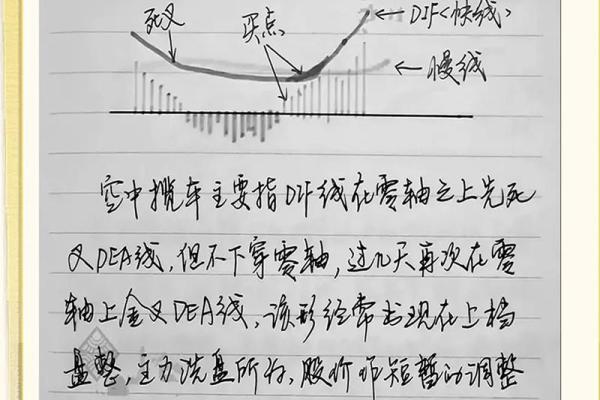 死叉 买点 DIF<快线>
慢线
空中揽车主要指DIF线在零轴之上先死
叉DEA线,但不下穿零轴,过几天再次在零
轴上金叉DEA线,该形经常出现在上档
盘整,主力洗盘所为,股价作短暂的调整